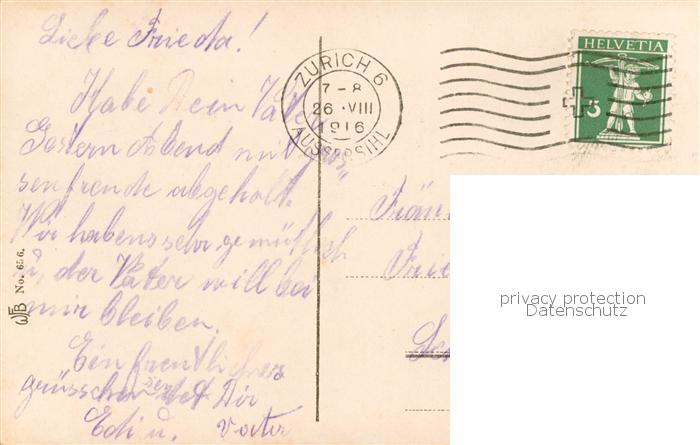 Liebe Frieda!
Habe Dein Vater
Gestern Abend mit gros„
sen freude abgeholt.
Wir habens sehr gemütlich
u, der Vater will bei
mir bleiben.
Ein freutliches
grüsschen sendet Dir
Edi u. Vater
WB No. 656.
ZÜRICH 6
7-8
26.VIII
1916
AUSSERSIHL
HELVETIA
5
Fräu
Frie
privacy protection
Datenschutz